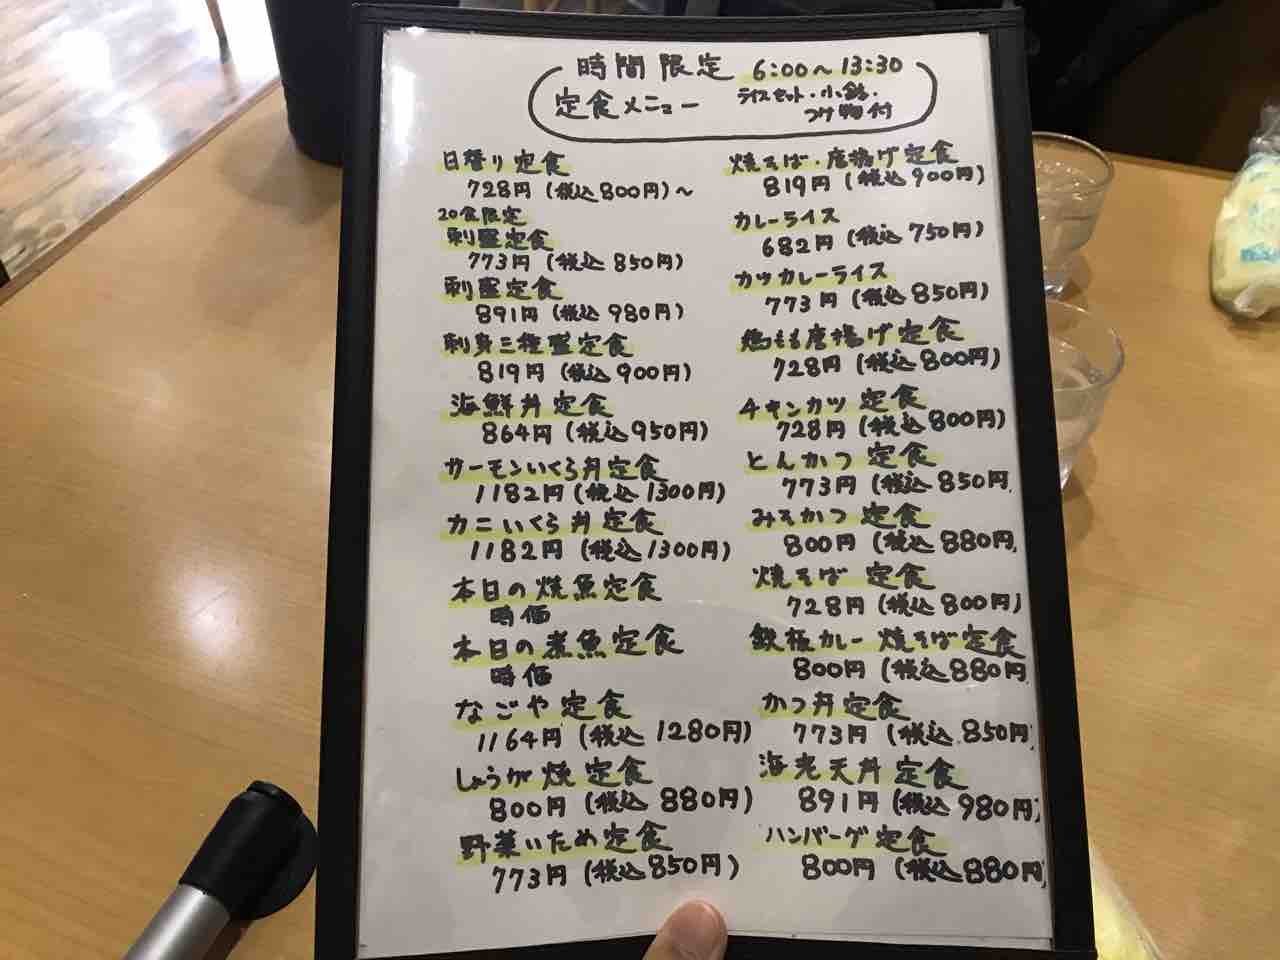 時間限定 6:00〜13:30
定食メニュー
ライスセット・小鉢・
つけ物付
日替り定食
728円(税込800円)〜
20食限定
刺盛定食
773円(税込850円)
刺盛定食
891円(税込980円)
刺身三種盛定食
819円(税込900円)
海鮮丼定食
864円(税込950円)
サーモンいくら丼定食
1182円(税込1300円)
カニいくら丼定食
1182円(税込1300円)
本日の焼魚定食
時価
本日の煮魚定食
時価
なごや定食
1164円(税込1280円)
しょうが焼定食
800円(税込880円)
野菜いため定食
773円(税込850円)
焼そば・唐揚げ定食
819円(税込900円)
カレーライス
682円(税込750円)
カツカレーライス
773円(税込850円)
鶏もも唐揚げ定食
728円(税込800円)
チキンカツ定食
728円(税込800円)
とんかつ定食
773円(税込850円)
みそかつ定食
800円(税込880円)
焼そば定食
728円(税込800円)
鉄板カレー焼そば定食
800円(税込880円)
かつ丼定食
773円(税込850円)
海老天丼定食
891円(税込980円)
ハンバーグ定食
800円(税込880円)